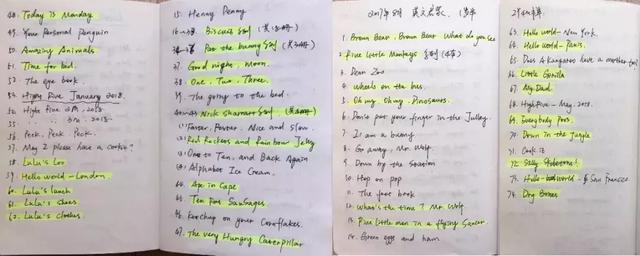 48. Today is Monday
49. Your Personal Penguin
50. Amazing Animals
51. Time for bed.
52. The eye book.
53. High Five January 2018.
54. High Five 2月. 2018.
55. 3月. 2018.
56. Peck. Peck. Peck.
57. May I please have a cookie?
58. Lulu's Loo
59. Hello world - London.
60. Lulu's lunch
61. Lulu's shoes
62. Lulu's clothes
15. Henny Penny
Biscuit 系列
Pat the bunny 系列
37. Good night, Moon.
38. One. Two. Three.
39. The going to bed.
Nick Sharratt 系列
Faster, Faster. Nice and Slow.
Red Rockets and Rainbow Jelly
One to Ten. and Back Again
Alphabet Ice Cream.
44. Axe in Cape
45. Ten Fat Sausages
46. Ketchup on your Cornflakes.
47. The very Hungry Caterpillar
2017年8月 英文启蒙.
1. Brown Bear, Brown Bear What do you see
2. Five Little Monkeys 系列
3. Dear Zoo
4. Wheels on the bus.
5. Oh my. Oh my. Dinosaurs.
6. Don't put your finger in the Jelly.
7. I am a bunny
8. Go away. Mr. Wolf.
9. Down by the station
10. Hop on pop
11. The foot book
12. What's the time? Mr. Wolf.
13. Five little men in a flying saucer
14. Green eggs and ham
63. Hello world - New York.
64. Hello world - Paris.
65. Does A Kangaroo have a mother too?
66. Little Gorilla
67. My Dad.
68. High Five - May. 2018.
69. Everybody Poos.
70. Down in the jungle
71. Cook it
72. Silly
73. Hello world - San Francisco.
74. Dog Bones